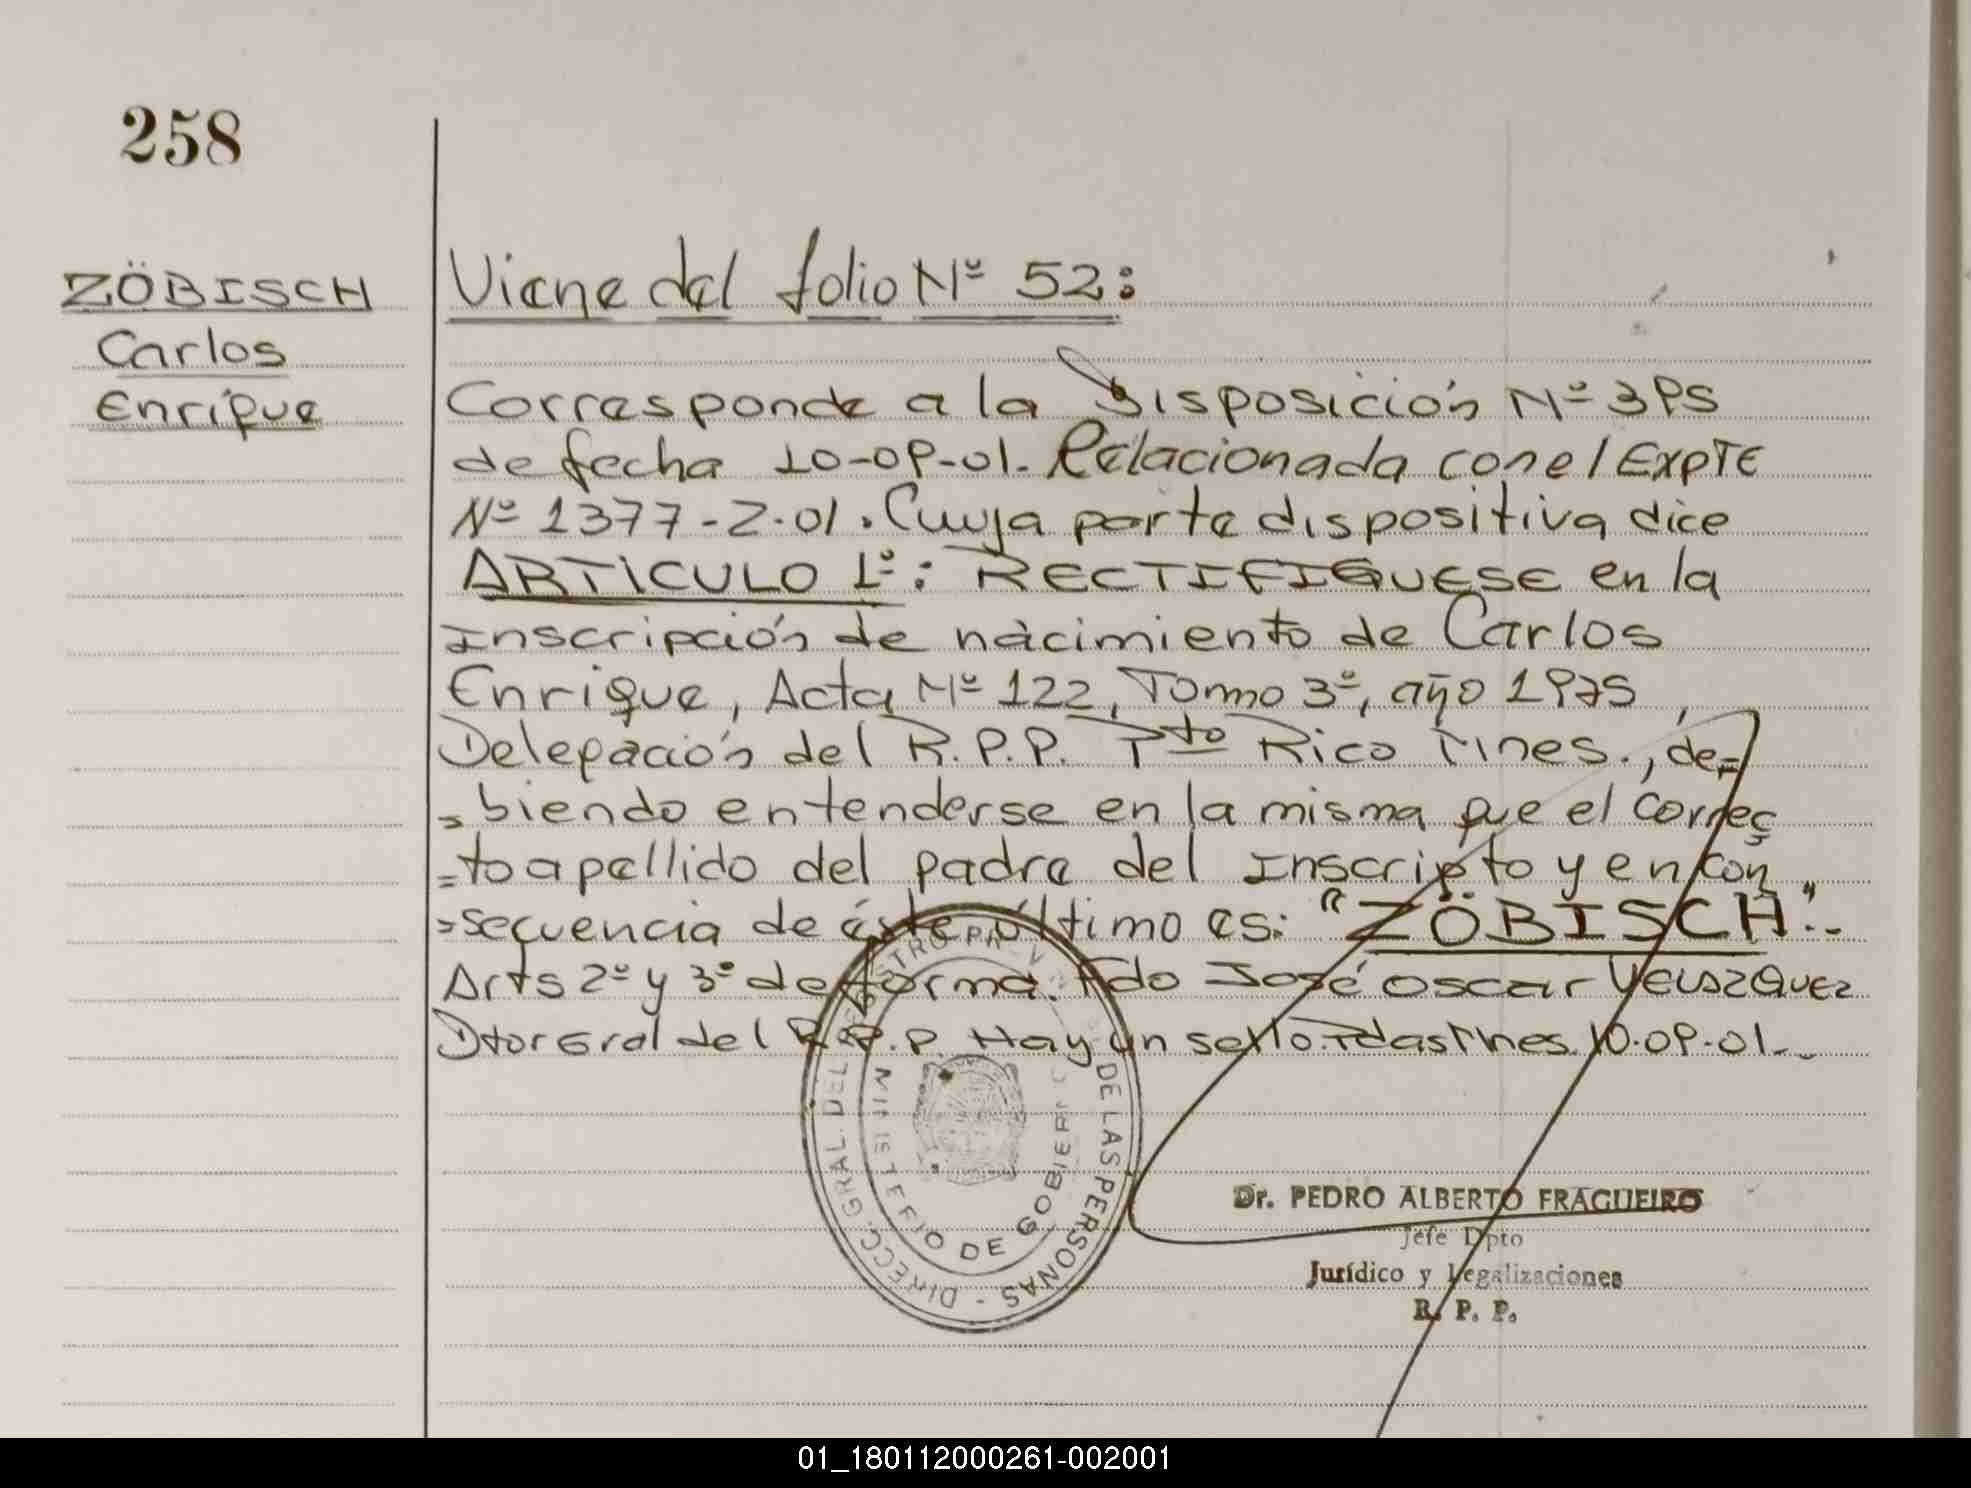 258
ZÖBISCH
Carlos
Enrique
Viene del folio Nº 52:
Corresponde a la Disposición Nº 395
de fecha 10-09-01. Relacionada con el Expte
Nº 1377-Z-01. Cuya parte dispositiva dice
ARTICULO 1º: RECTIFIQUESE en la
Inscripción de nacimiento de Carlos
Enrique, Acta Nº 122, Tomo 3º, año 1975,
Delegación del R.P.P. Pto Rico Mnes., de=
=biendo entenderse en la misma que el correc
=to apellido del padre del Inscripto y en con
=secuencia de éste último es: "ZÖBISCH".-
Arts 2º y 3º de forma. Fdo José Oscar VELAZQUEZ
Dtor Gral del R.P.P. Hay un sello. Pdas Mnes. 10-09-01.-
DIRECC. GRAL. DEL REGISTRO PROV. DE LAS PERSONAS -
MINISTERIO DE GOBIERNO
Dr. PEDRO ALBERTO FRAGUEIRO
Jefe Dpto
Jurídico y Legalizaciones
R. P. P.
01_180112000261-002001